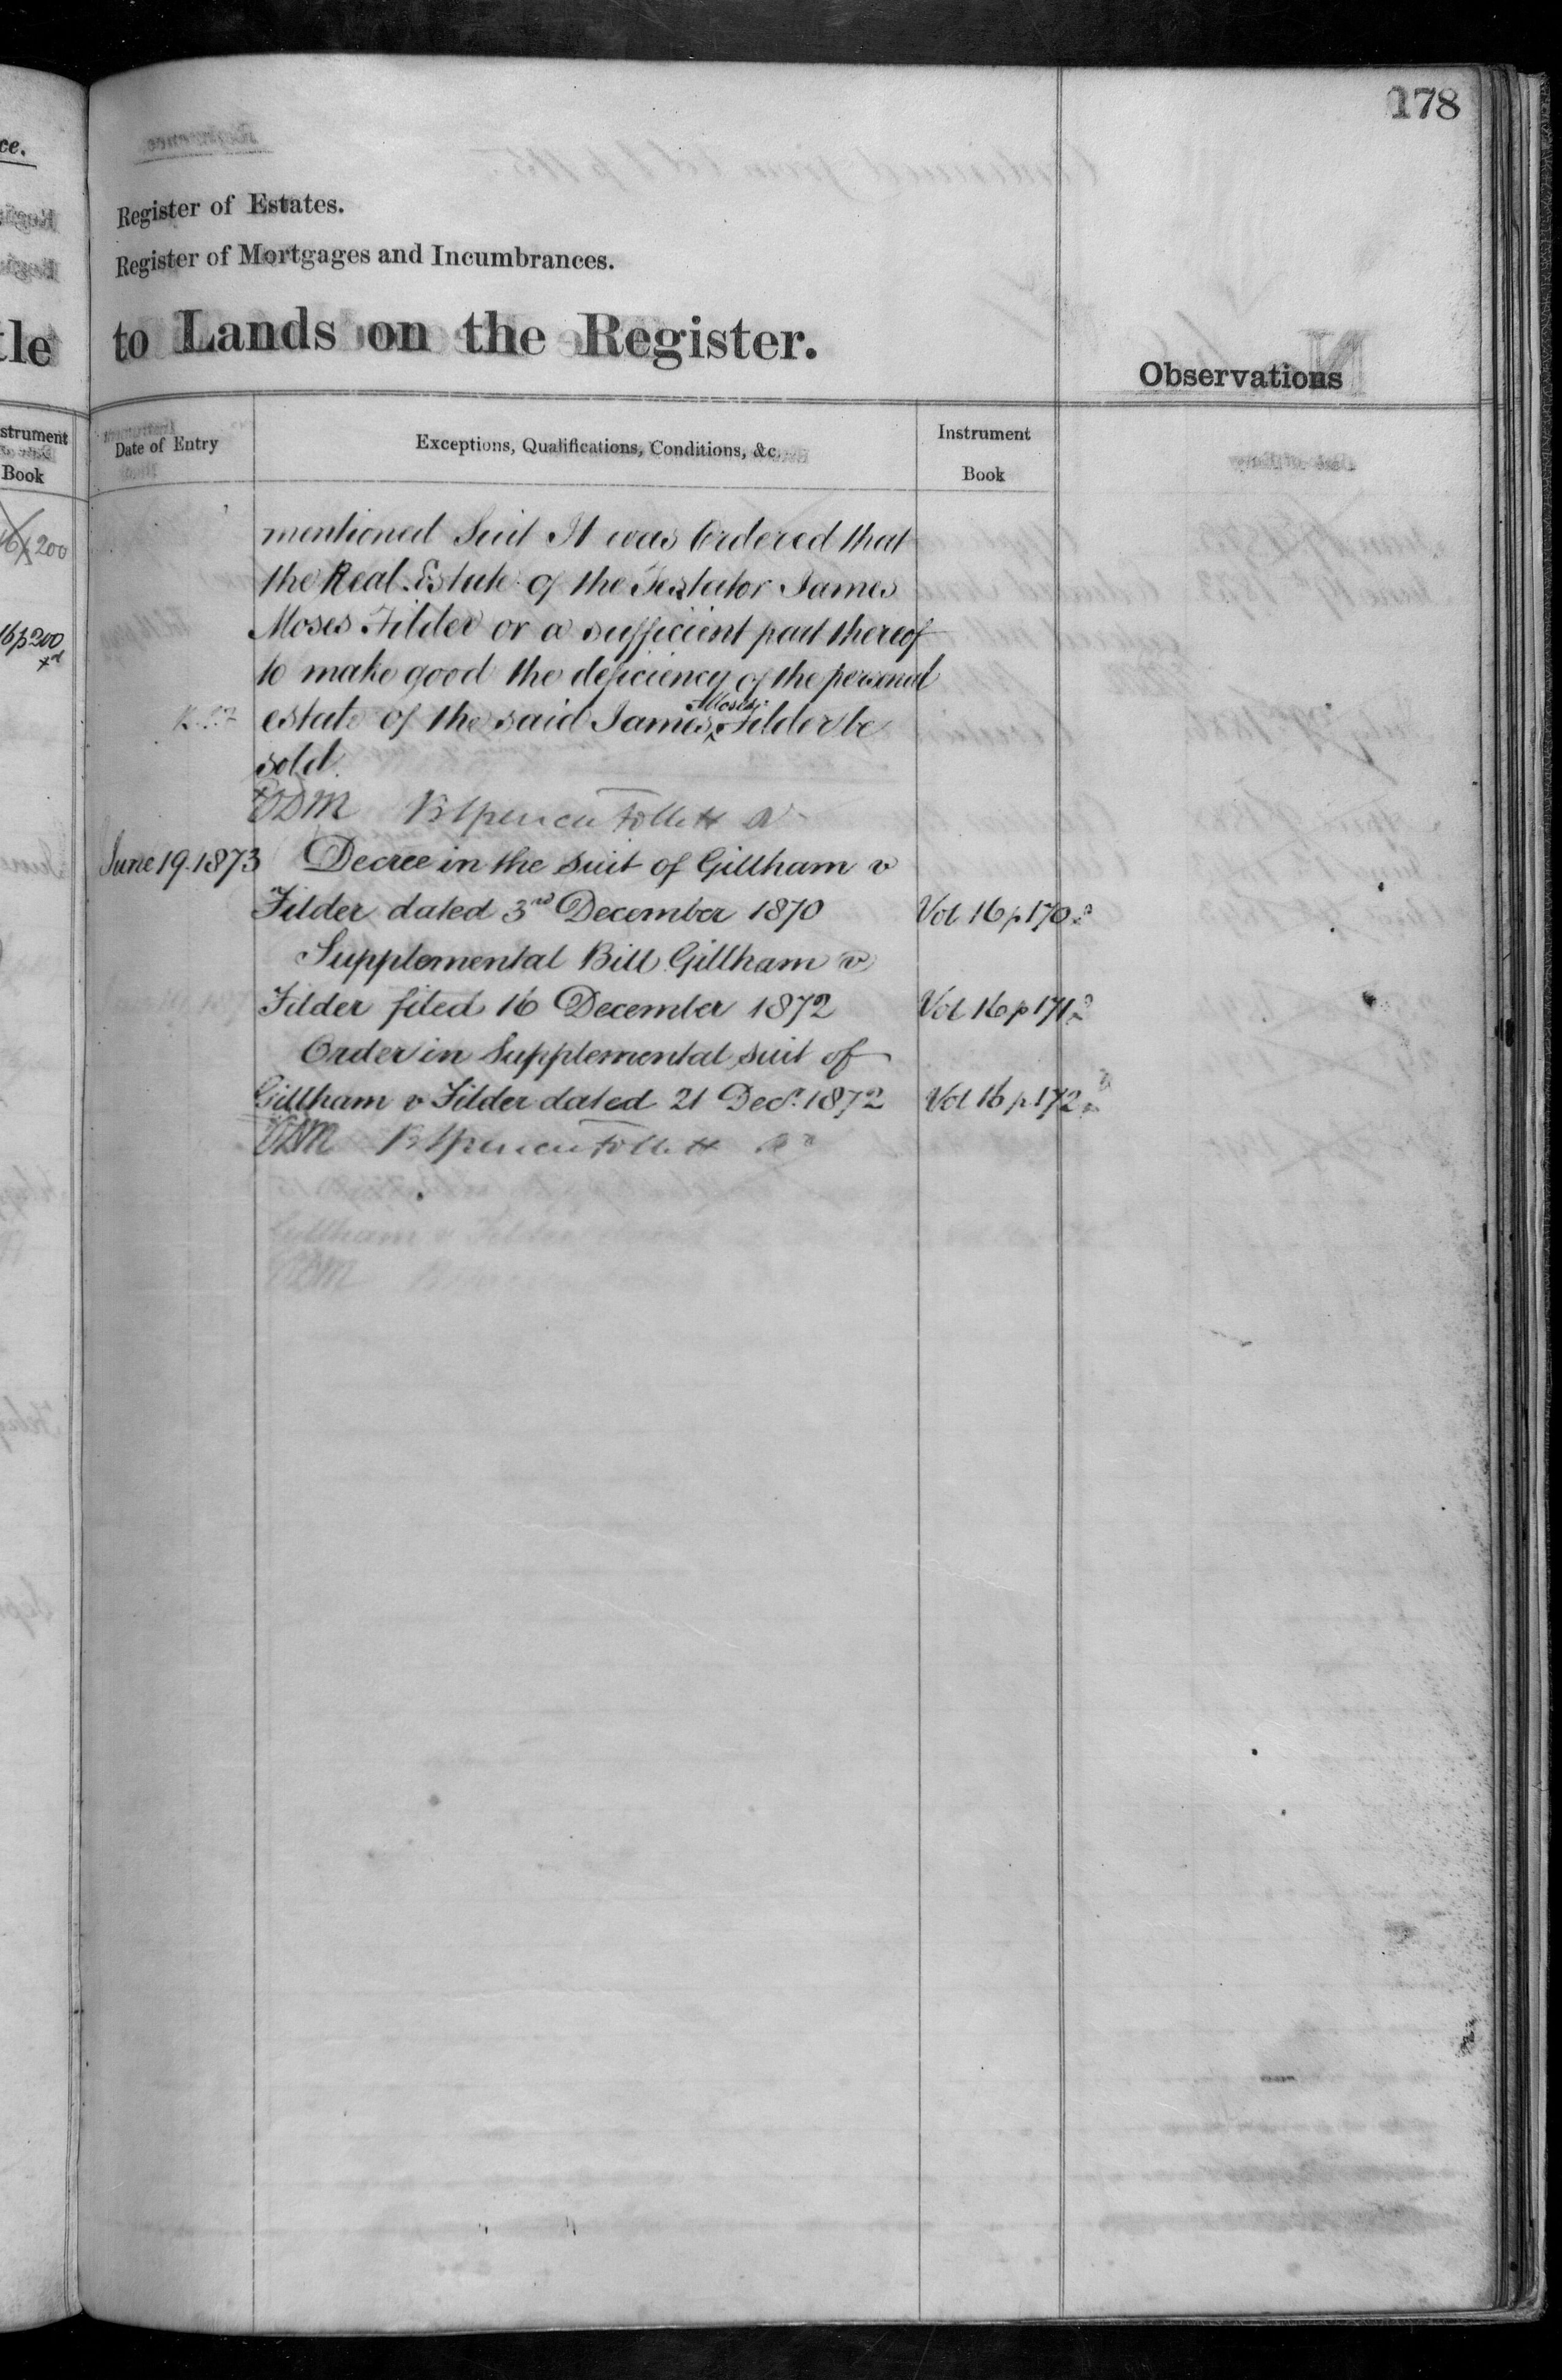 178
Register of Estates.
Register of Mortgages and Incumbrances.
to Lands on the Register.
Observations
Date of Entry
Exceptions, Qualifications, Conditions, &c.
Instrument
Book
mentioned Suit It was Ordered that
the Real Estate of the Testator James
Moses Filder or a sufficient part thereof
to make good the deficiency of the personal
estate of the said James Moses Filder be
sold.
BSpencer Follett
June 19. 1873 Decree in the suit of Gillham v
Filder dated 3rd December 1870 Vol 16 p 170
Supplemental Bill Gillham v
Filder filed 16 December 1872 Vol 16 p 171
Order in Supplemental suit of
Gillham v Filder dated 21 Decr. 1872 Vol 16 p 172
BSpencer Follett
ce.
tle
strument
Book
16 p 200
16 p 200